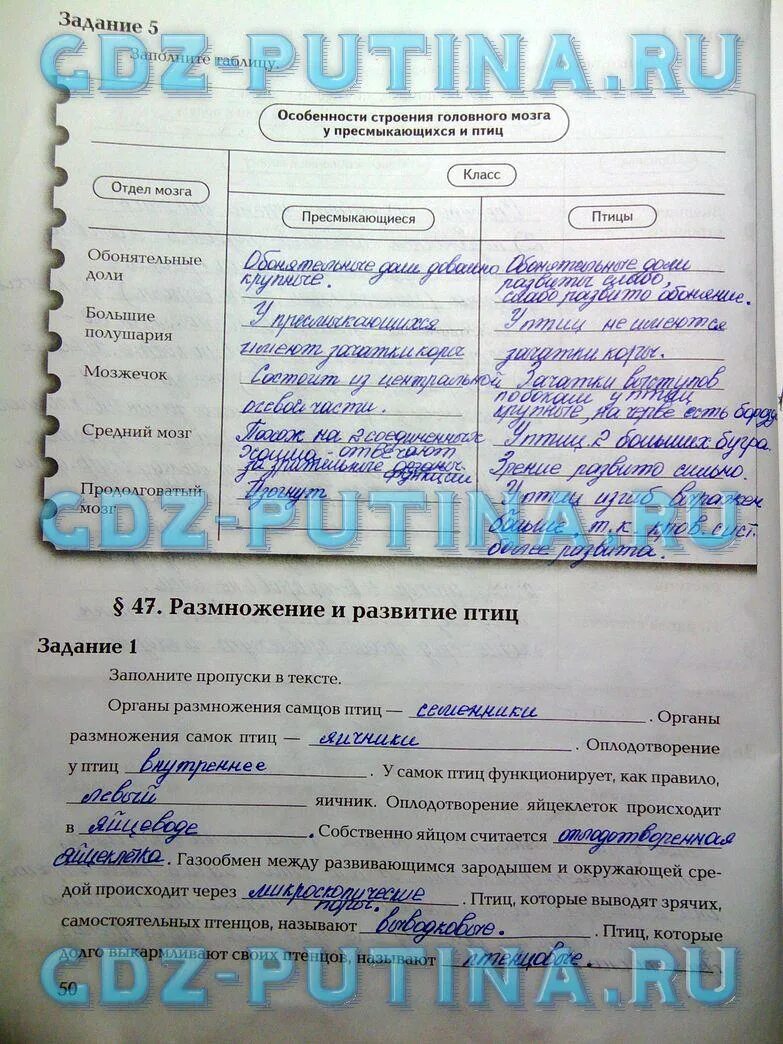 Задание 5
GDZ-PUTINA.RU
Заполните таблицу.
Особенности строения головного мозга
у пресмыкающихся и птиц
Отдел мозга
Класс
Пресмыкающиеся
Птицы
Обонятельные
доли
Обонятельные доли довольно
крупные.
Обонятельные доли
развиты слабо,
слабо развито обоняние.
Большие
полушария
У пресмыкающихся
имеют зачатки коры
У птиц не имеются
зачатки коры.
Мозжечок
Состоит из центральной
осевой части.
Зачатки выступов
по бокам у птиц
крупные, на черве есть
Средний мозг
Похож на 2 соединенных
отвечают
за зрительные функции
У птиц 2 больших бугра.
Зрение развито сильно.
Продолговатый
мозг
Прогнут
У птиц изгиб выражен
больше, т.к. кров. сист.
более развита.
GDZ-PUTINA.RU
§ 47. Размножение и развитие птиц
Задание 1
Заполните пропуски в тексте.
Органы размножения самцов птиц — семенники. Органы
размножения самок птиц — яичники. Оплодотворение
у птиц внутреннее. У самок птиц функционирует, как правило,
левый яичник. Оплодотворение яйцеклеток происходит
в яйцеводе. Собственно яйцом считается оплодотворенная
яйцеклетка. Газообмен между развивающимся зародышем и окружающей сре-
дой происходит через микроскопические поры. Птиц, которые выводят зрячих,
самостоятельных птенцов, называют выводковые. Птиц, которые
долго выкармливают своих птенцов, называют птенцовые.
GDZ-PUTINA.RU
50